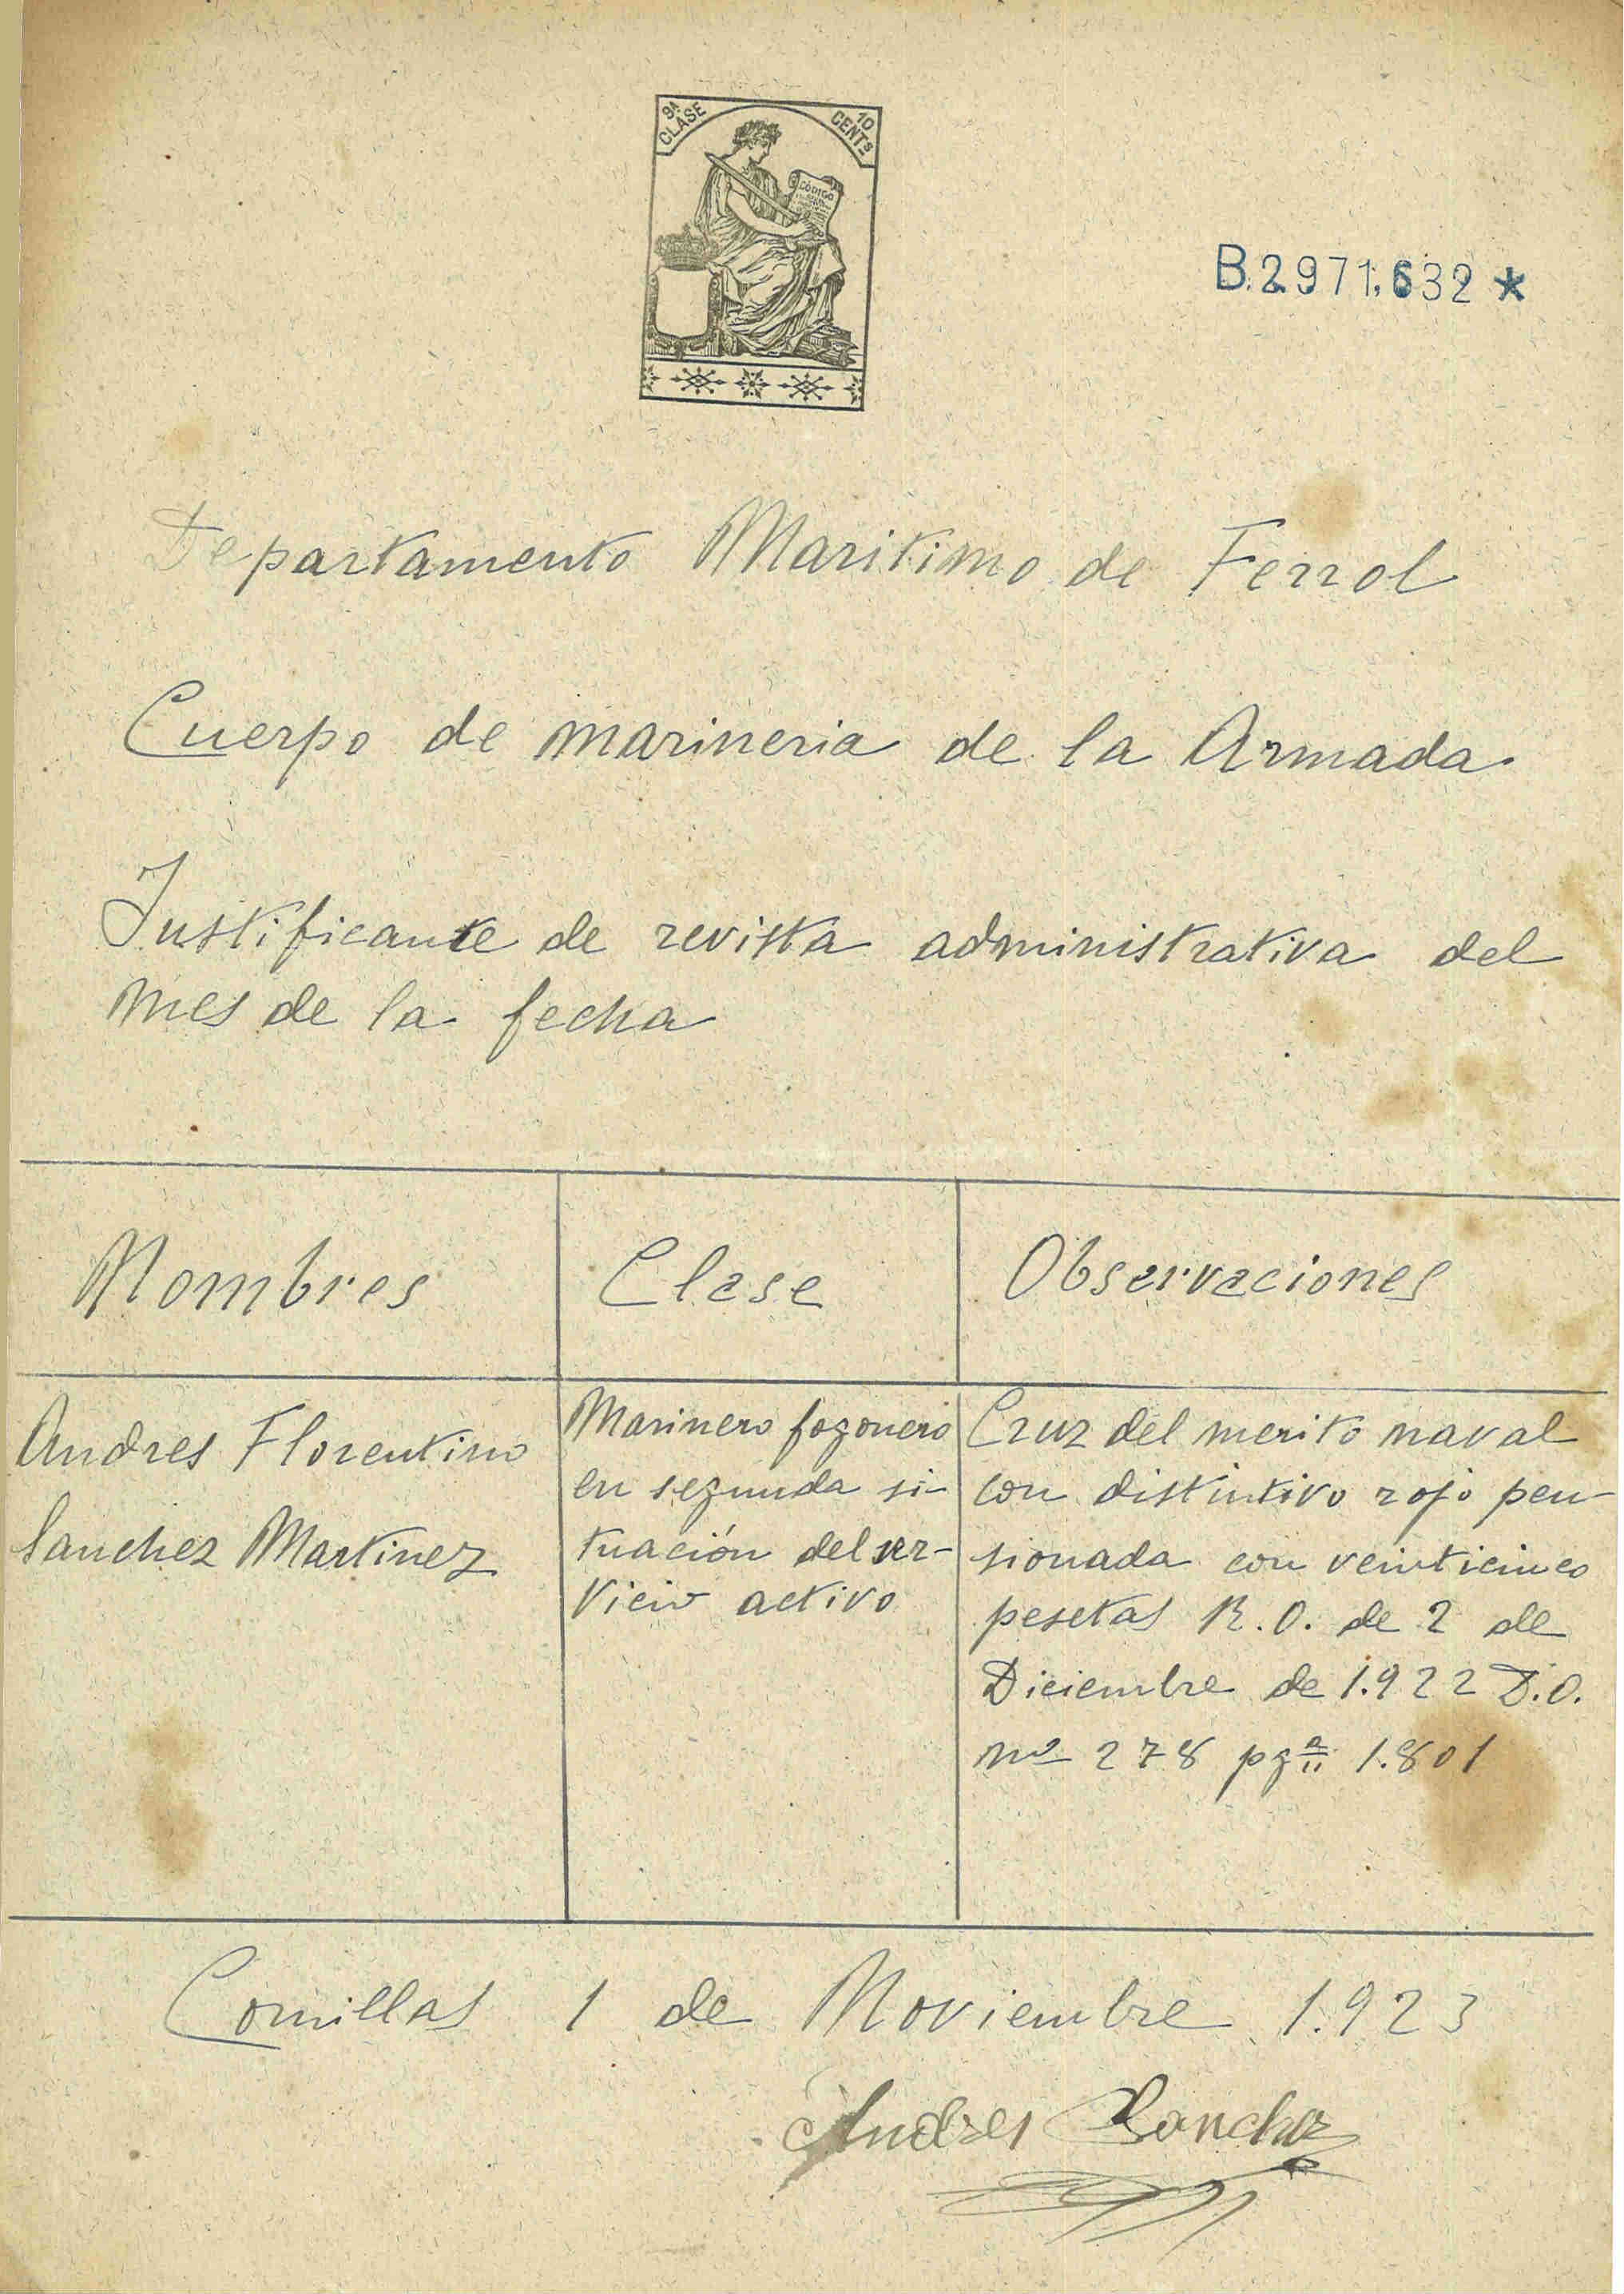 9ª CLASE
10 CENTs
CÓDIGO
B.2.971.632 *
Departamento Maritimo de Ferrol
Cuerpo de marineria de la Armada
Justificante de revista administrativa del
mes de la fecha
Nombres
Clase
Observaciones
Andres Florentino
Sanchez Martinez
Marinero fogonero
en segunda si-
tuación del ser-
vicio activo
Cruz del merito naval
con distintivo rojo pen-
sionada con veinticinco
pesetas R.O. de 2 de
Diciembre de 1.922 D.O.
nº 278 pgª 1.801
Comillas 1 de Noviembre 1.923
Andres Sanchez